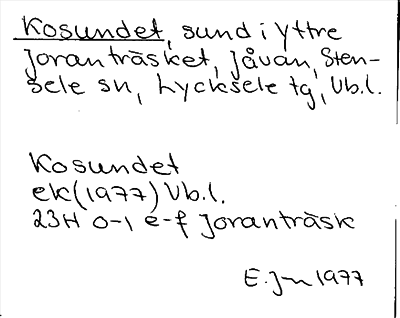 Kosundet, sund i yttre
Joranträsket, Jåvan, Sten-
sele sn, Lycksele tg, Vb.l.
Kosundet
ek (1977) Vb.l.
23H 0-1 e-f Joranträsk
E. Jn 1977